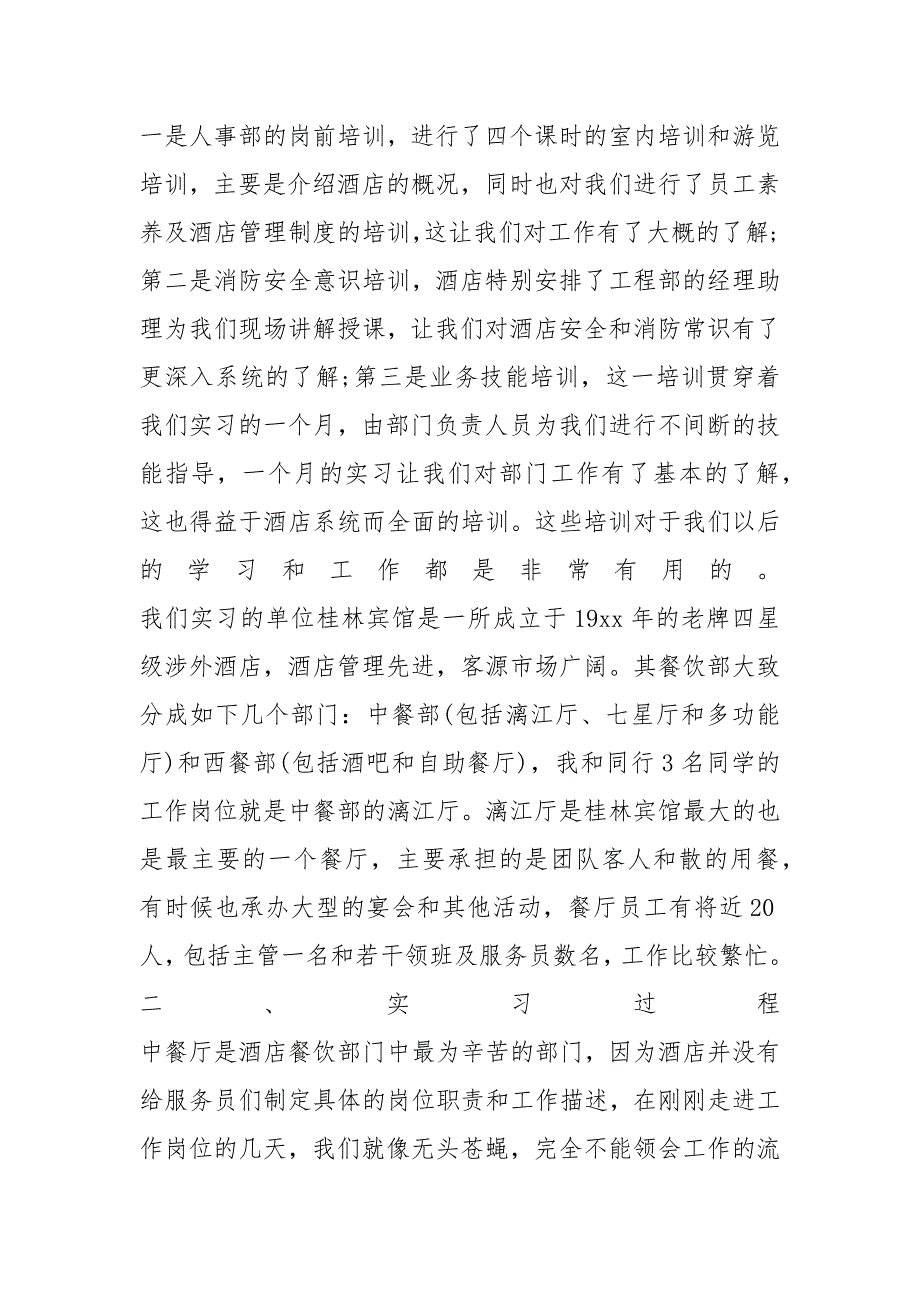 一是人事部的岗前培训，进行了四个课时的室内培训和游览
培训，主要是介绍酒店的概况，同时也对我们进行了员工素
养及酒店管理制度的培训,这让我们对工作有了大概的了解;
第二是消防安全意识培训，酒店特别安排了工程部的经理助
理为我们现场讲解授课，让我们对酒店安全和消防常识有了
更深入系统的了解;第三是业务技能培训，这一培训贯穿着
我们实习的一个月，由部门负责人员为我们进行不间断的技
能指导，一个月的实习让我们对部门工作有了基本的了解，
这也得益于酒店系统而全面的培训。这些培训对于我们以后
的学习和工作都是非常有用的。
我们实习的单位桂林宾馆是一所成立于 19xx 年的老牌四星
级涉外酒店，酒店管理先进，客源市场广阔。其餐饮部大致
分成如下几个部门：中餐部(包括漓江厅、七星厅和多功能
厅)和西餐部(包括酒吧和自助餐厅)，我和同行 3 名同学的
工作岗位就是中餐部的漓江厅。漓江厅是桂林宾馆最大的也
是最主要的一个餐厅，主要承担的是团队客人和散的用餐，
有时候也承办大型的宴会和其他活动，餐厅员工有将近 20
人，包括主管一名和若干领班及服务员数名，工作比较繁忙。
二、实习过程
中餐厅是酒店餐饮部门中最为辛苦的部门，因为酒店并没有
给服务员们制定具体的岗位职责和工作描述，在刚刚走进工
作岗位的几天，我们就像无头苍蝇，完全不能领会工作的流